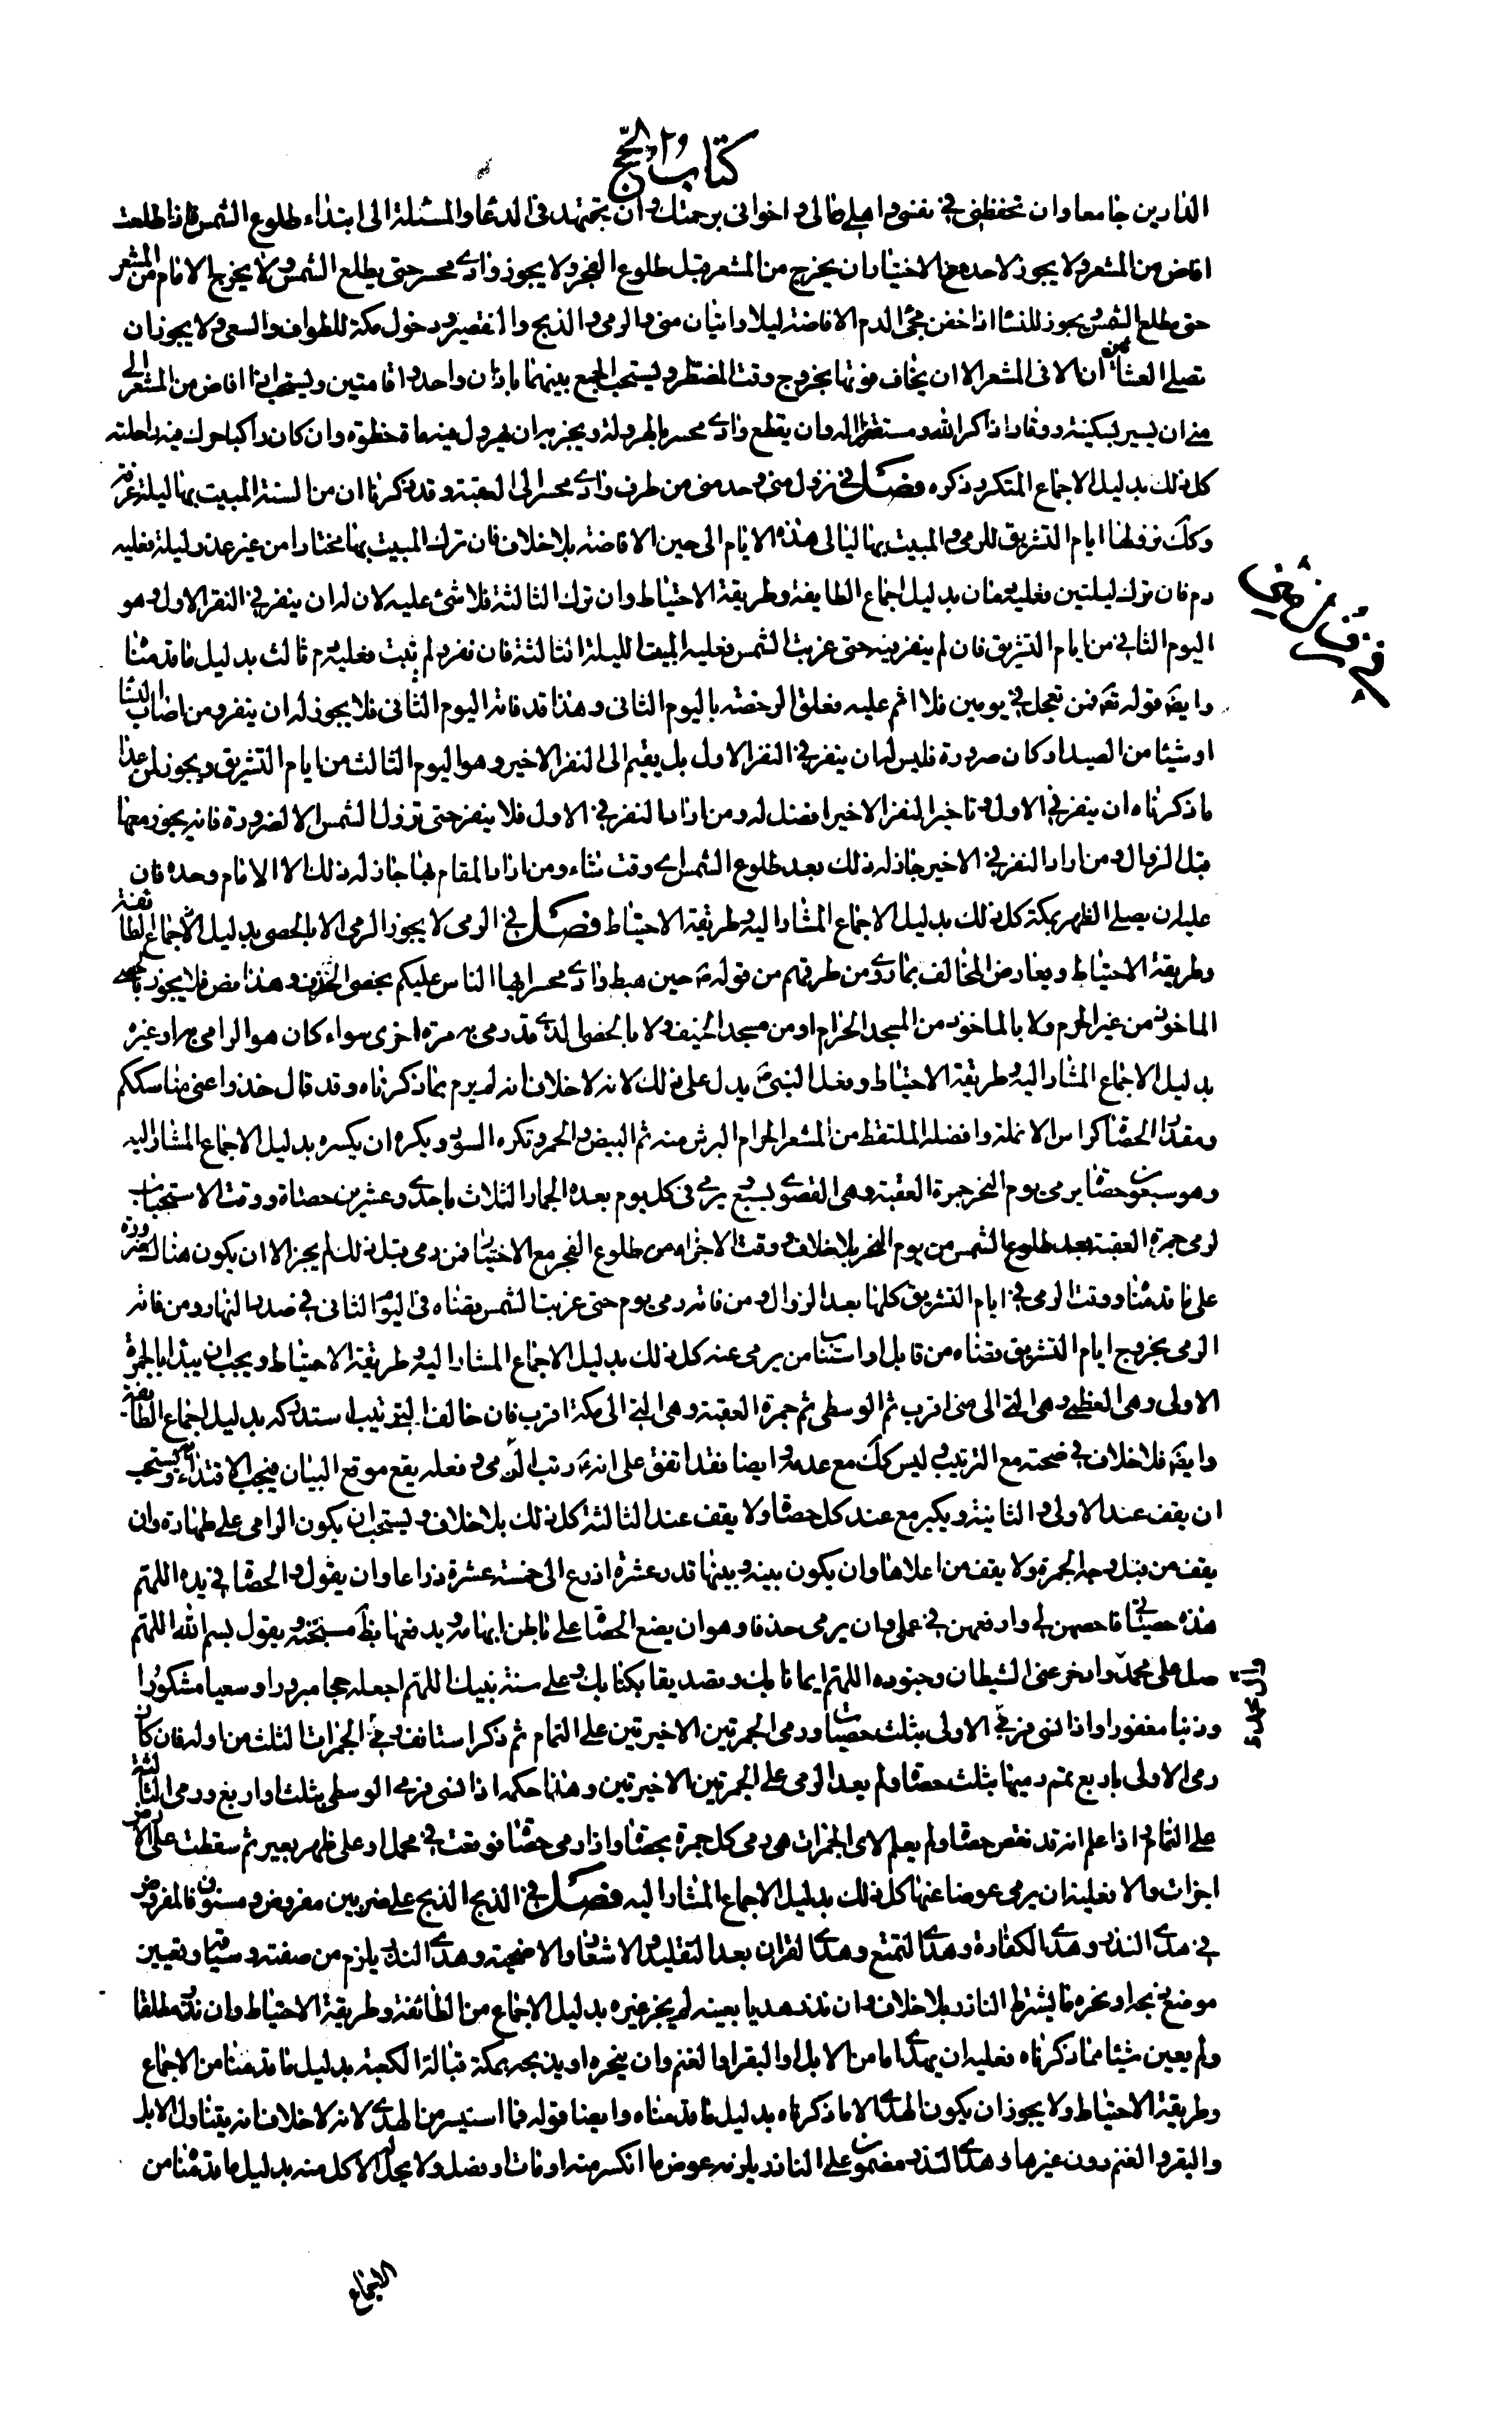 كتاب الحج
الدارين جامعا وان تحفظني في نفسي و اهلي و مالي و اخواني برحمتك و ان يجتهد في الدعا و المسئلة الى ابتداء طلوع الشمس فاذا طلعت
افاض من المشعر و لا يجوز لاحد مع الاختيار ان يخرج من المشعر قبل طلوع الفجر و لا يجوز وادي محسر حتى يطلع الشمس و لا يخرج الامام من المشعر
حتى يطلع الشمس و يجوز للنسا اذا خفن مجئ الدم الافاضة ليلا و اتيان منى و الرمي و الذبح و التقصير و دخول مكة للطواف و السعي و لا يجوز ان
تصلى العشاان الا في المشعر الا ان يخاف فوتهما بخروج وقت المضطر و يستحب الجمع بينهما باذان واحد و اقامتين و يستحب اذا افاض من المشعر الى
منى ان يسير بسكينة و وقار ذاكرا لله و مستغفرا له و ان يقطع وادي محسر بالهرولة و يجزيه ان يهرول فيه مائة خطوة و ان كان راكبا حرك فيه راحلته
كل ذلك بدليل الاجماع المتكرر ذكره فصل في نزول منى و حد منى من طرف وادي محسر الى العقبة و قد ذكرنا ان من السنة المبيت بها ليلة عرفة
و كك نزولها ايام التشريق للرمي و المبيت بها ليالي هذه الايام الى حين الافاضة بلا خلاف فان ترك المبيت بها مختارا من غير عذر ليلة فعليه
دم فان ترك ليلتين فعليه دمان بدليل اجماع الطايفة و طريقة الاحتياط و ان ترك الثالثة فلا شئ عليه لان له ان ينفر في النفر الاول و هو
اليوم الثاني من ايام التشريق فان لم ينفر فيه حتى غربت الشمس فعليه المبيت الليلة الثالثة فان نفر و لم يبت فعليه دم ثالث بدليل ما قدمناه
و ايضا قوله تعه فمن تعجل في يومين فلا اثم عليه فعلق الرخصة باليوم الثاني و هذا قد فاته اليوم الثاني فلا يجوز له ان ينفر و من اصاب النسا
او شيئا من الصيد او كان صرورة فليس له ان ينفر في النفر الاول بل يقيم الى النفر الاخير و هو اليوم الثالث من ايام التشريق و يجوز لمن عدا
ما ذكرناه ان ينفر في الاول و تاخير النفر الاخير افضل له و من اراد النفر في الاول فلا ينفر حتى تزول الشمس الا لضرورة فانه يجوز معها
قبل الزوال و من اراد النفر في الاخير جاز له ذلك بعد طلوع الشمس اي وقت شاء و من اراد المقام بها جاز له ذلك الا الامام وحده فان
عليه ان يصلي الظهر بمكة كل ذلك بدليل الاجماع المشار اليه و طريقة الاحتياط فصل في الرمي لا يجوز الرمي الا بالحصى بدليل الاجماع الطائفة
و طريقة الاحتياط و يعارض المخالف بما روي من طرقهم من قوله ص حين هبط وادي محسر ايها الناس عليكم بحصى الخذف و هذا نص فلا يجوز بالحصى
الماخوذ من غير الحرم و لا بالماخوذ من المسجد الحرام او من مسجد الخيف و لا بالحصى الذي قد رمي به مرة اخرى سواء كان هو الرامي به او غيره
بدليل الاجماع المشار اليه و طريقة الاحتياط و فعل النبي ص يدل على ذلك لانه لا خلاف انه لم يرم بما ذكرناه و قد قال خذوا عني مناسككم
و مقدار الحصا كراس الانملة و افضله الملتقط من المشعر الحرام البرش منه ثم البيض و الحمر و تكره السود و يكره ان يكسره بدليل الاجماع المشار اليه
و هو سبعون حصاة يرمى يوم النحر جمرة العقبة و هي القصوى بسبع يرمي في كل يوم بعده الجمار الثلاث باحدى و عشرين حصاة و وقت الاستحباب
لرمي جمرة العقبة بعد طلوع الشمس من يوم النحر بلا خلاف و وقت الاجزاء من طلوع الفجر مع الاختيار فمن رمى قبل ذلك لم يجز الا ان يكون هناك ضرورة
على ما قدمناه و وقت الرمي في ايام التشريق كلها بعد الزوال و من فاته رمي يوم حتى غربت الشمس قضاه في اليوم الثاني في صدر النهار و من فاته
الرمي بخروج ايام التشريق قضاه من قابل او استناب من يرمي عنه كل ذلك بدليل الاجماع المشار اليه و طريقة الاحتياط و يجب ان يبتدأ بالجمرة
الاولى و هي العظمى و هي التي الى منى اقرب ثم الوسطى ثم جمرة العقبة و هي التي الى مكة اقرب فان خالف الترتيب استدركه بدليل اجماع الطائفة
و ايضا فلا خلاف في صحته مع الترتيب و ليس كك مع عدمه و ايضا فقد اتفق على انه ص رتب الرمي و فعله يقع موقع البيان فيجب الاقتداء به و يستحب
ان يقف عند الاولى و الثانية و يكبر مع عند كل حصاة و لا يقف عند الثالثة كل ذلك بلا خلاف و يستحب ان يكون الرامي على طهارة و ان
يقف من قبل وجه الجمرة و لا يقف من اعلاها و ان يكون بينه و بينها قدر عشرة اذرع الى خمسة عشرة ذراعا و ان يقول و الحصا في يده اللهم
هذه حصيتي فاحصهن لي و ارفعهن في عملي و ان يرمي حذفا و هو ان يضع الحصا على باطن ابهامه و يدفعها بظاهر مسبحته و يقول بسم الله اللهم
صل على محمد و ادخر عني الشيطان و جنوده اللهم ايمانا بك و تصديقا بكتابك و على سنة نبيك اللهم اجعله حجا مبرورا و سعيا مشكورا
و ذنبا مغفورا و اذا نسي فرمى الاولى بثلث حصيات و رمى الجمرتين الاخيرتين على التمام ثم ذكر استانف رمي الجمرات الثلث من اوله فان كان
رمى الاولى باربع تمم رميها بثلث حصا و لم يعد الرمي على الجمرتين الاخيرتين و هذا حكمه اذا نسي فرمى الوسطى بثلث او اربع و رمى الثالثة
على التمام و اذا علم انه قد نقص حصاة و لم يعلم لاي الجمرات هي رمى كل جمرة بحصاة و اذا رمى حصاة فوقعت في محمل او على ظهر بعير ثم سقطت على الارض
اجزات و الا فعليه ان يرمي عوضا عنها كل ذلك بدليل الاجماع المشار اليه فصل في الذبح الذبح على ضربين مفروض و مسنون فالمفروض
في هدي النذر و هدي الكفارة و هدي التمتع و هدي القران بعد التقليد و الاشعار و الاضحية و هدي النذر يلزم من صفته و سياقه و تعيين
موضع ذبحه او نحره ما يشترط الناذر بلا خلاف و ان نذر هديا بعينه لم يجز غيره بدليل الاجماع من الطائفة و طريقة الاحتياط و ان نذر مطلقا
و لم يعين شيئا مما ذكرناه فعليه ان يهدي اما من الابل او البقر او الغنم و ان ينحره او يذبحه بمكة قبالة الكعبة بدليل ما قدمنا من الاجماع
و طريقة الاحتياط و لا يجوز ان يكون الهدي الا ما ذكرناه بدليل ما قدمناه و ايضا قوله فما استيسر من الهدي لانه لا خلاف انه يتناول الابل
و البقر و الغنم دون غيرها و هدي النذر مضمون على الناذر يلزمه عوض ما انكسر منه او مات او ضل و لا يحل له الاكل منه بدليل ما قدمنا من
الاجماع